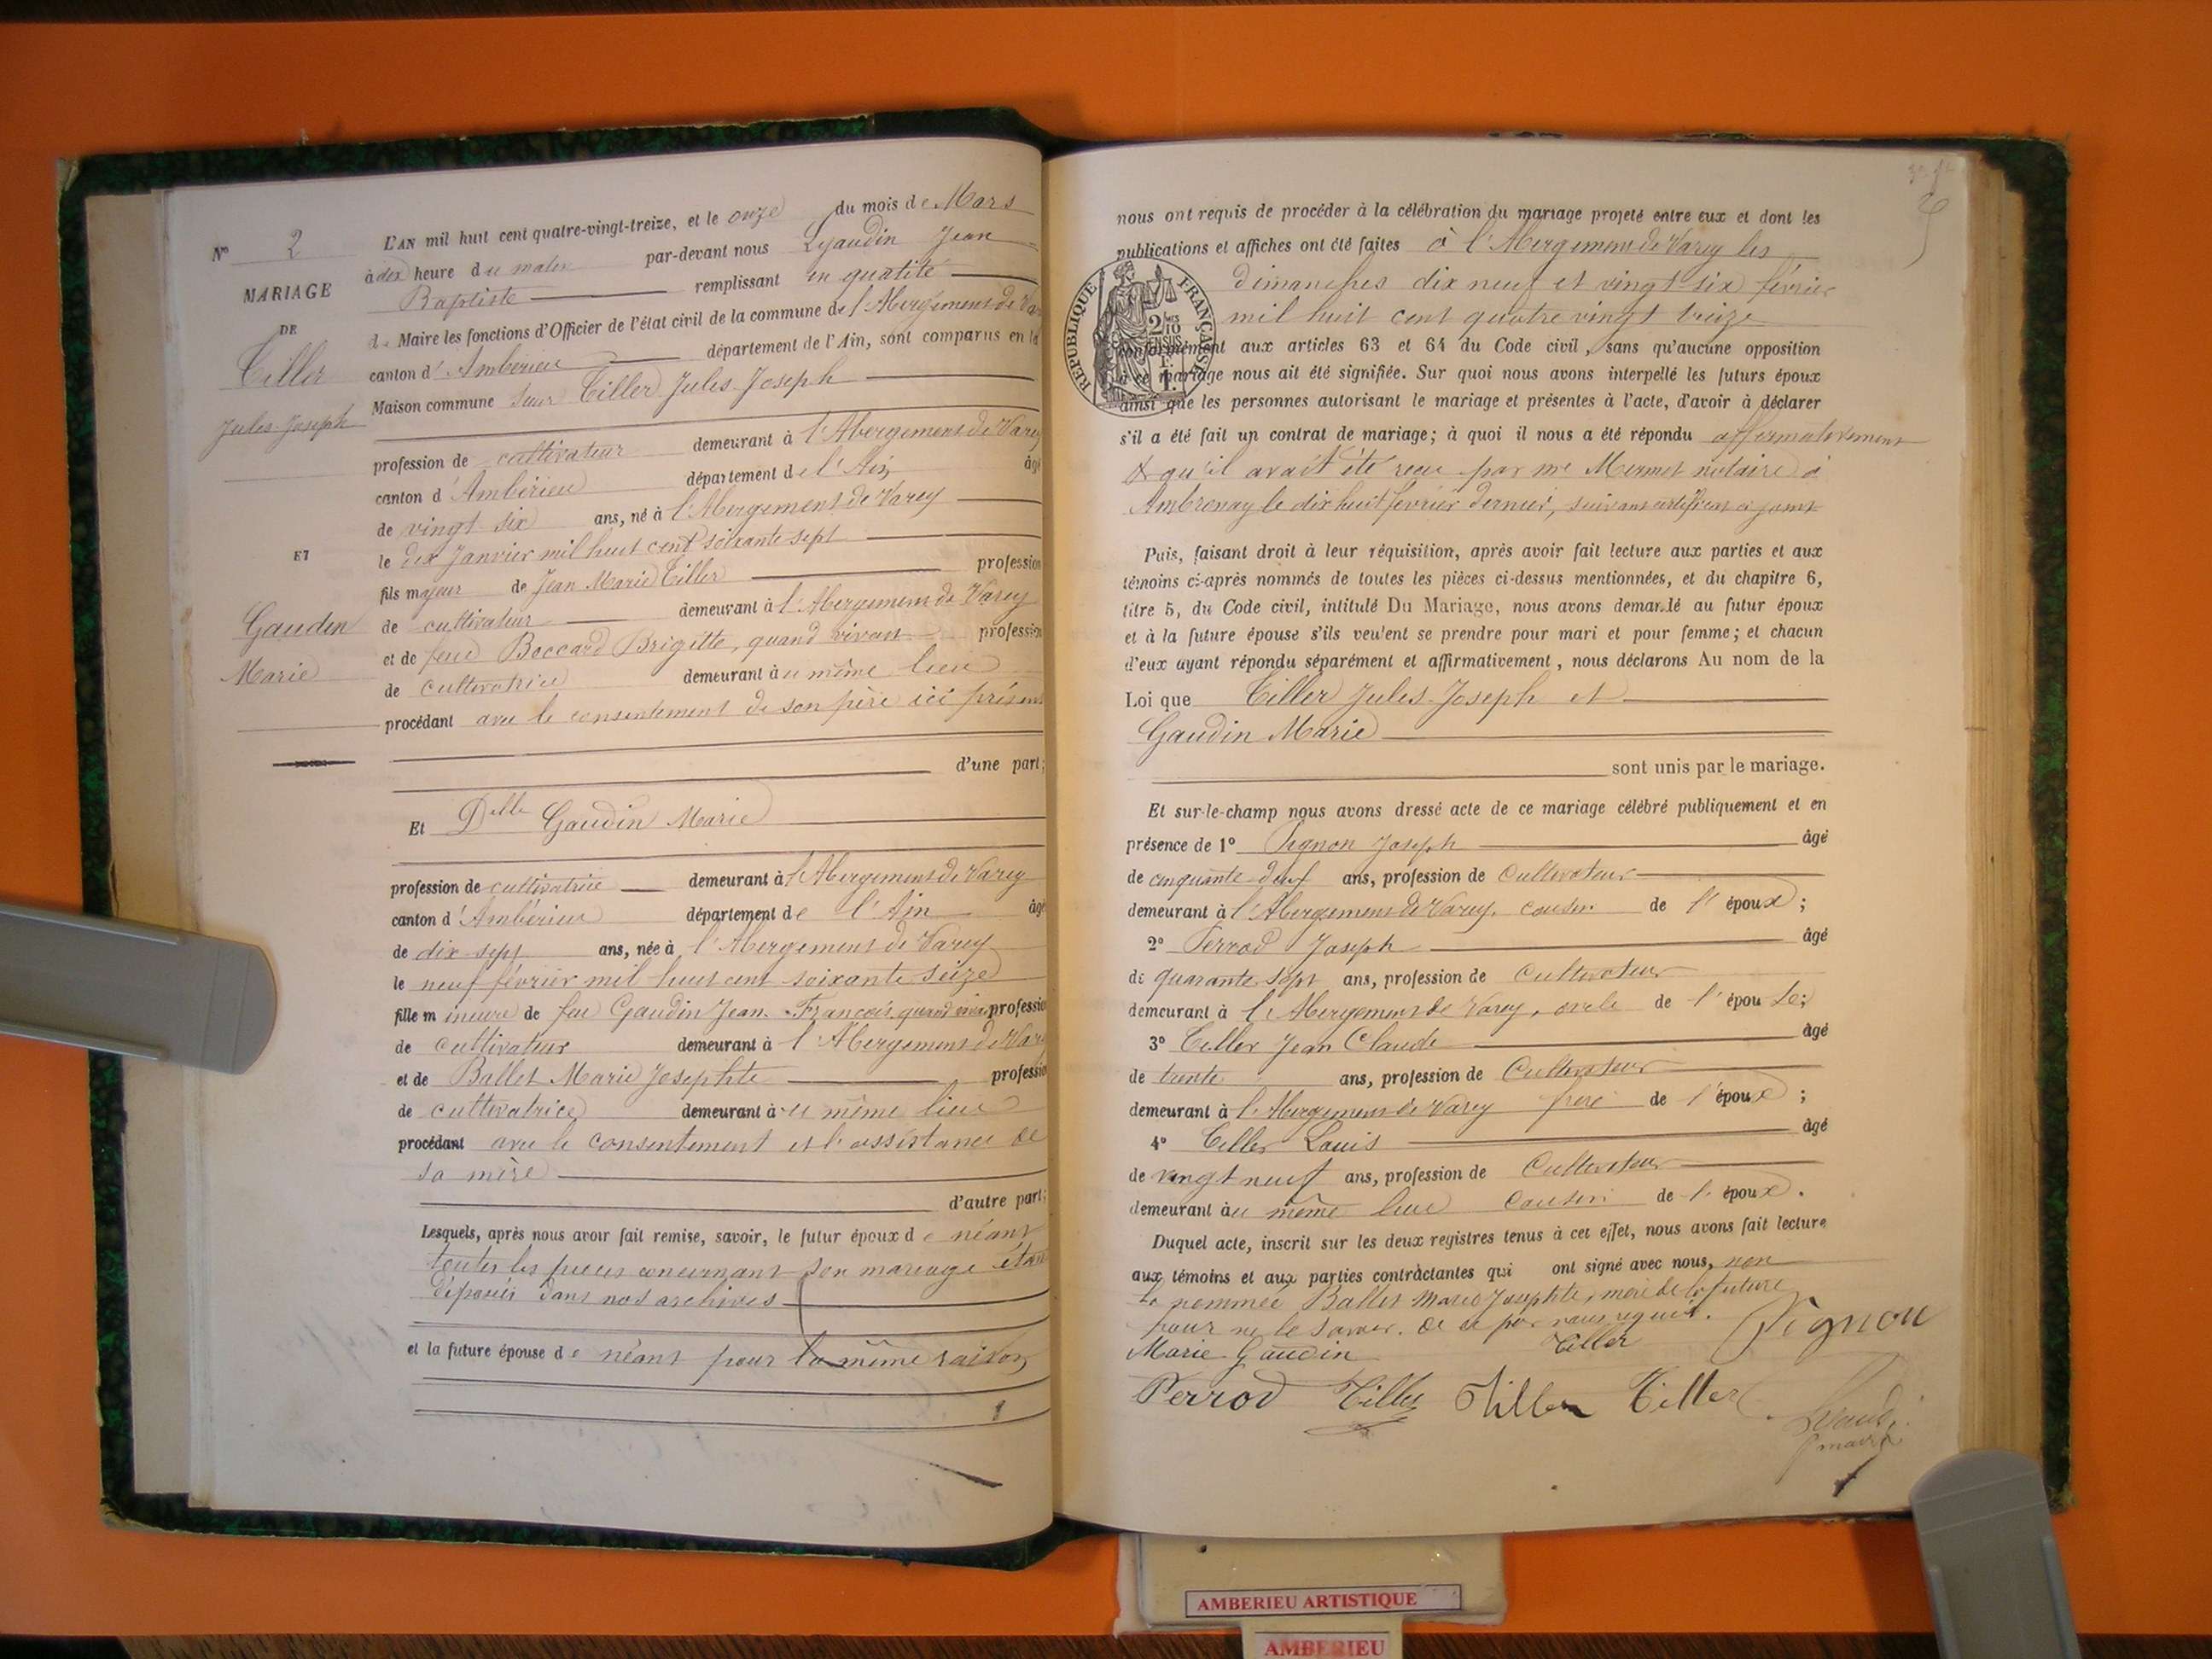 N° 2
MARIAGE
DE
Tiller
Jules Joseph
ET
Gaudin
Marie
L'AN mil huit cent quatre-vingt-treize, et le onze du mois de Mars
à dix heure du matin par-devant nous Lyaudin Jean
Baptiste remplissant en qualité
de Maire les fonctions d'Officier de l'état civil de la commune de l'Abergement de Var
canton d'Ambérieu département de l'Ain, sont comparus en la
Maison commune Sieur Tiller Jules Joseph
profession de cultivateur demeurant à l'Abergement de Varey
canton d'Ambérieu département de l'Ain âgé
de vingt six ans, né à l'Abergement de Varey
le dix Janvier mil huit cent soixante sept
fils majeur de Jean Marie Tiller profession
de cultivateur demeurant à l'Abergement de Varey
et de feue Boccard Brigitte, quand vivait profession
de cultivatrice demeurant au même lieu
procédant avec le consentement de son père ici présent
d'une part;
Et Delle Gaudin Marie
profession de cultivatrice demeurant à l'Abergement de Varey
canton d'Ambérieu département de l'Ain âgé
de dix sept ans, née à l'Abergement de Varey
le neuf février mil huit cent soixante seize
fille mineure de feu Gaudin Jean François quand vivait profession
de cultivateur demeurant à l'Abergement de Varey
et de Ballet Marie Josephte profession
de cultivatrice demeurant au même lieu
procédant avec le consentement et l'assistance de
sa mère
d'autre part;
Lesquels, après nous avoir fait remise, savoir, le futur époux de néant
toutes les pièces concernant son mariage étant
déposées dans nos archives
et la future épouse de néant pour la même raison
nous ont requis de procéder à la célébration du mariage projeté entre eux et dont les
publications et affiches ont été faites à l'Abergement de Varey les
dimanches dix neuf et vingt six février
mil huit cent quatre vingt treize
conformément aux articles 63 et 64 du Code civil, sans qu'aucune opposition
à ce mariage nous ait été signifiée. Sur quoi nous avons interpellé les futurs époux
ainsi que les personnes autorisant le mariage et présentes à l'acte, d'avoir à déclarer
s'il a été fait un contrat de mariage; à quoi il nous a été répondu affirmativement
& qu'il avait été reçu par me Mermet notaire à
Ambronay le dix huit février dernier, suivant certificat ci joint
RÉPUBLIQUE FRANÇAISE
Puis, faisant droit à leur réquisition, après avoir fait lecture aux parties et aux
témoins ci-après nommés de toutes les pièces ci-dessus mentionnées, et du chapitre 6,
titre 5, du Code civil, intitulé Du Mariage, nous avons demandé au futur époux
et à la future épouse s'ils veulent se prendre pour mari et pour femme; et chacun
d'eux ayant répondu séparément et affirmativement, nous déclarons Au nom de la
Loi que Tiller Jules Joseph et
Gaudin Marie
sont unis par le mariage.
Et sur-le-champ nous avons dressé acte de ce mariage célébré publiquement et en
présence de 1° Pignon Joseph âgé
de cinquante deux ans, profession de Cultivateur
demeurant à l'Abergement de Varey, cousin de l'époux;
2° Perrod Joseph âgé
de quarante sept ans, profession de Cultivateur
demeurant à l'Abergement de Varey, oncle de l'épouse;
3° Tiller Jean Claude âgé
de trente ans, profession de Cultivateur
demeurant à l'Abergement de Varey frère de l'époux;
4° Tiller Louis âgé
de vingt neuf ans, profession de Cultivateur
demeurant au même lieu Cousin de l'époux.
Duquel acte, inscrit sur les deux registres tenus à cet effet, nous avons fait lecture
aux témoins et aux parties contractantes qui ont signé avec nous, non
la nommée Ballet Marie Josephte, mère de la future
pour ne le savoir. de ce par nous requis.
Marie Gaudin Tiller Pignon
Perrod Tiller Tiller Tiller
maire
AMBERIEU ARTISTIQUE
AMBERIEU